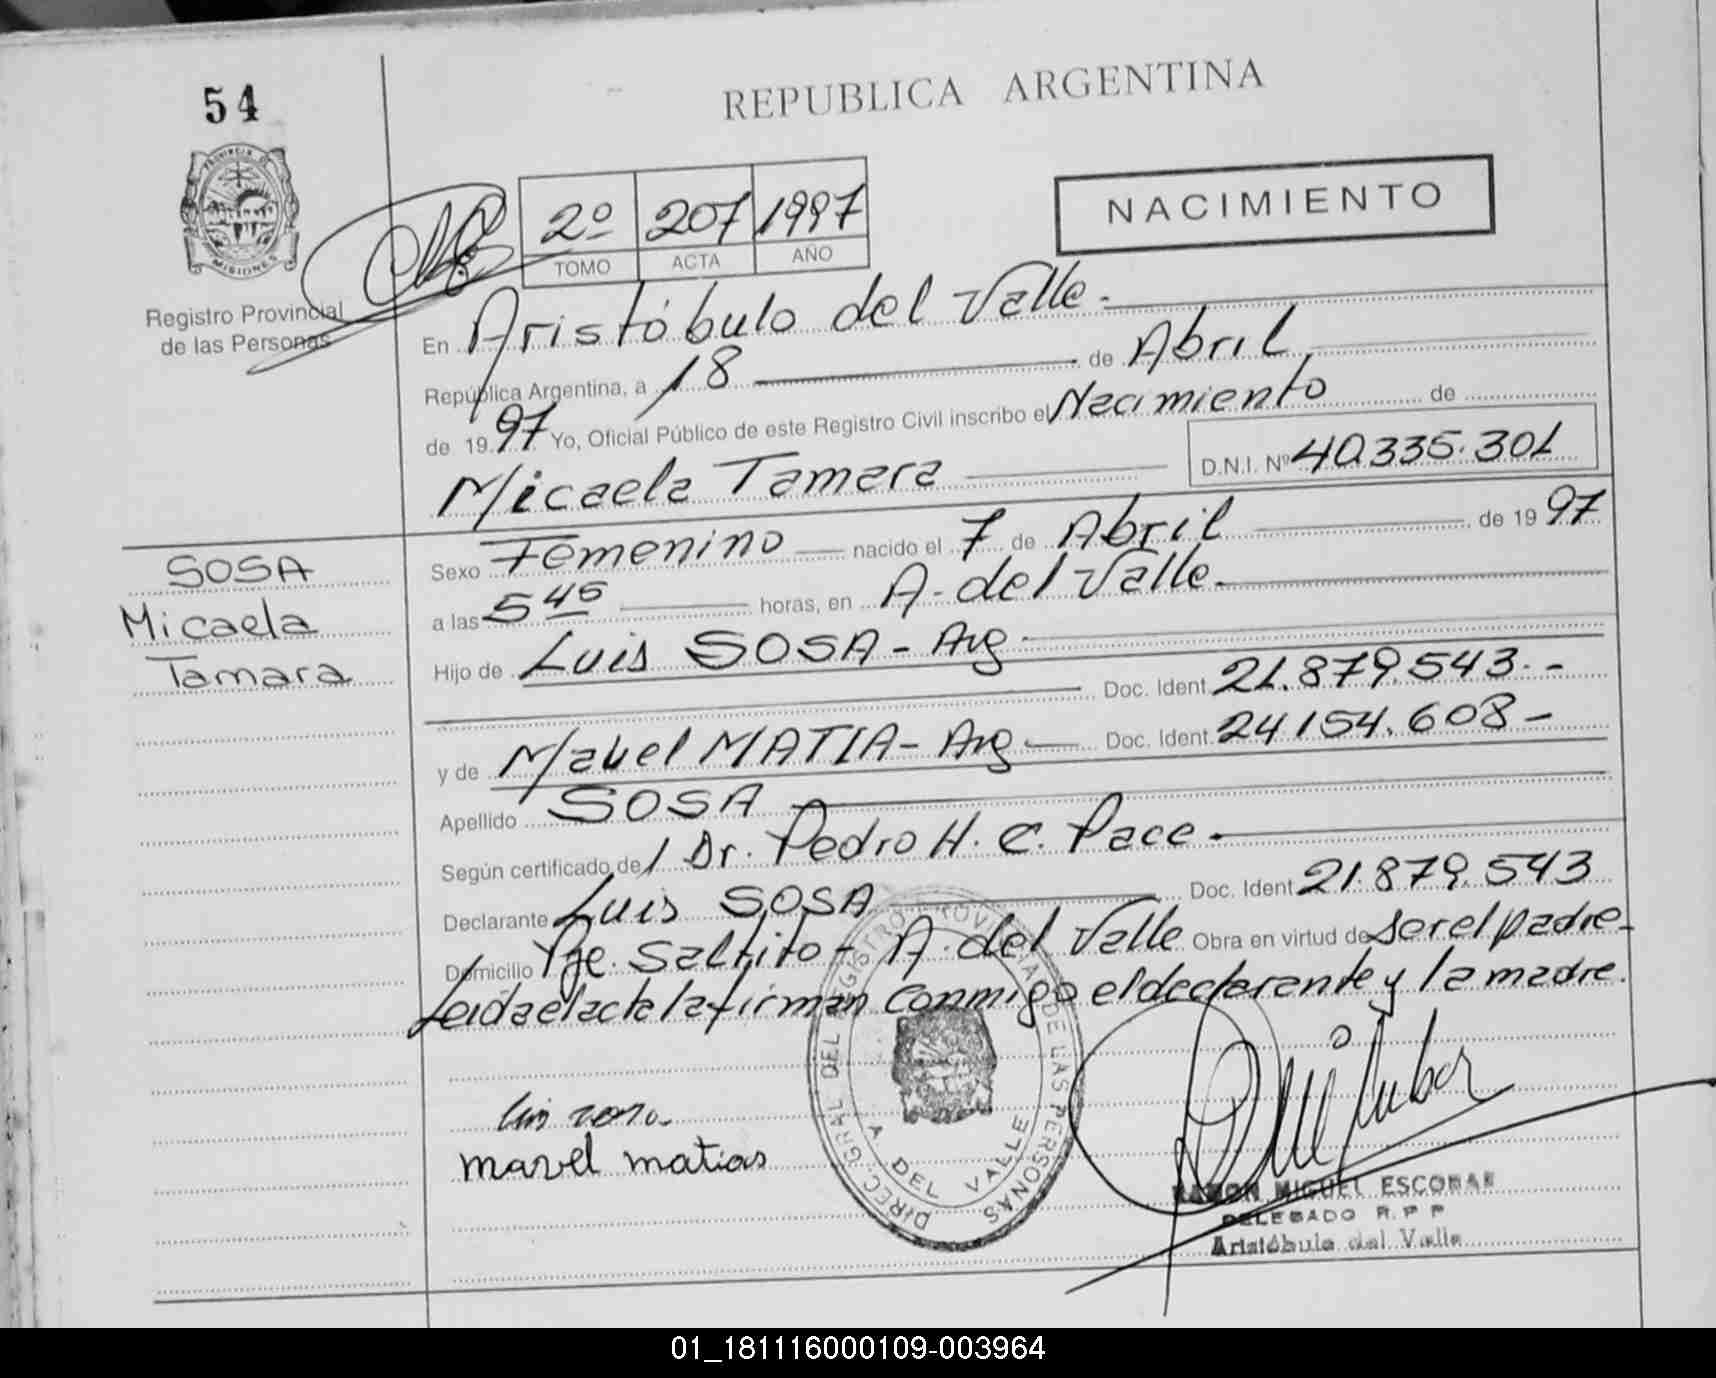 54
REPUBLICA ARGENTINA
PROVINCIA DE
MISIONES
Registro Provincial
de las Personas
2º 207 1997
TOMO ACTA AÑO
NACIMIENTO
En Aristóbulo del Valle.
República Argentina, a 18 de Abril
de 1997 Yo, Oficial Público de este Registro Civil inscribo el Nacimiento de
Micaela Tamara D.N.I. Nº 40.335.301
SOSA
Micaela
Tamara
Sexo Femenino nacido el 7 de Abril de 1997
a las 5 45 horas, en A. del Valle.
Hijo de Luis SOSA - Arg
Doc. Ident. 21.879.543.-
y de Mabel MATIA - Arg Doc. Ident. 24154.608-
Apellido SOSA
Según certificado de / Dr. Pedro H. C. Pace.
Declarante Luis SOSA Doc. Ident. 21.879.543
Domicilio Pje. Saltito - A. del Valle Obra en virtud de ser el padre-
Leida el acta la firman conmigo el declarante y la madre.
marvel matias
DIREC. GRAL DEL REGISTRO PROVINCIAL DE LAS PERSONAS
A DEL VALLE
RAMON MIGUEL ESCOBAR
DELEGADO R. P. P
Aristóbulo del Valle
01_181116000109-003964